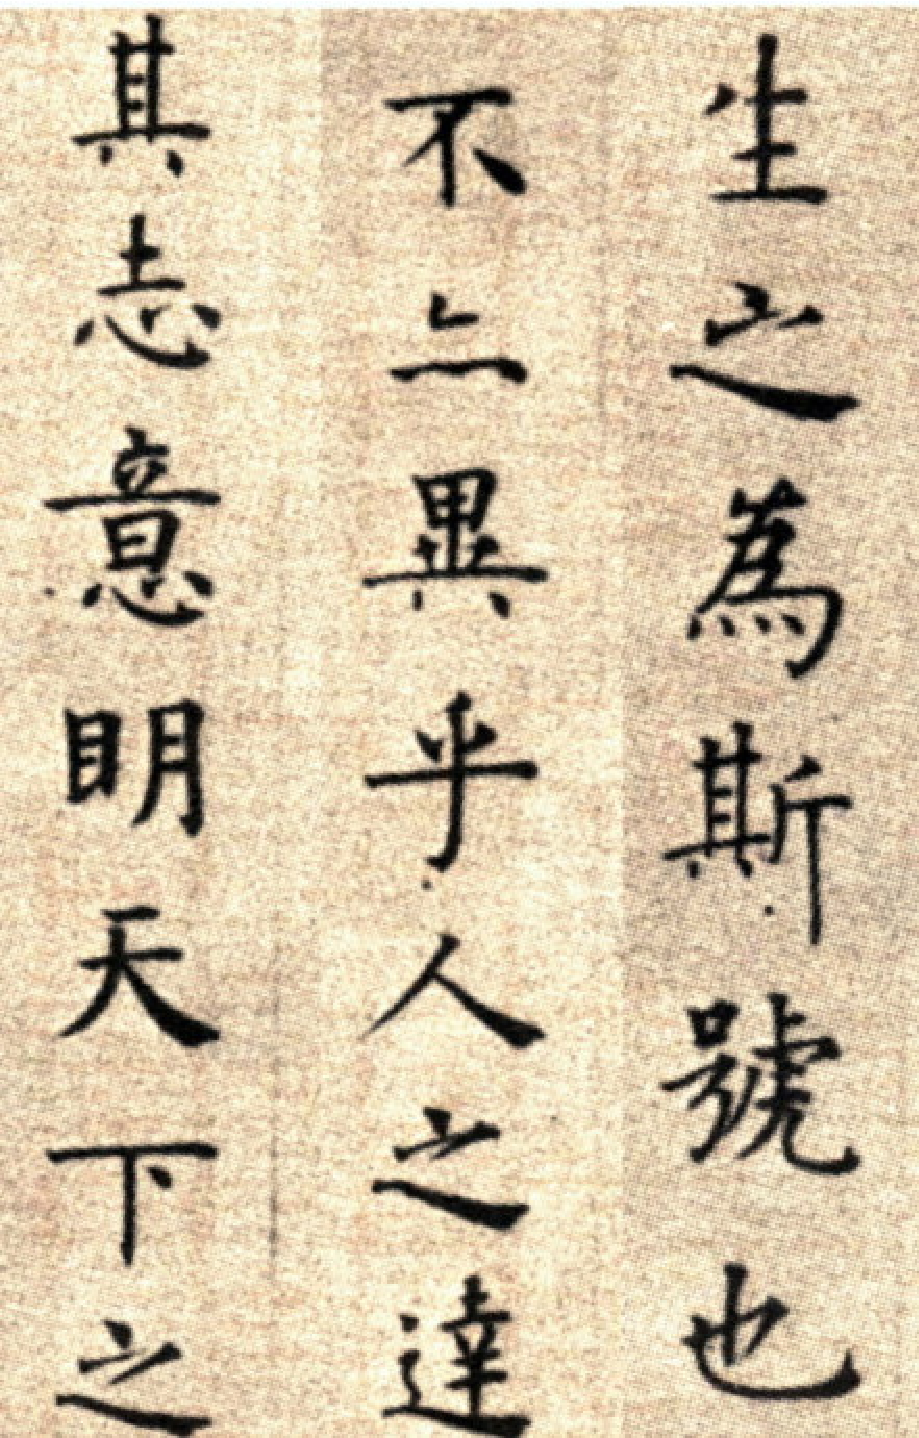 生之為斯號也
不亠異乎人之達
其志意明天下之